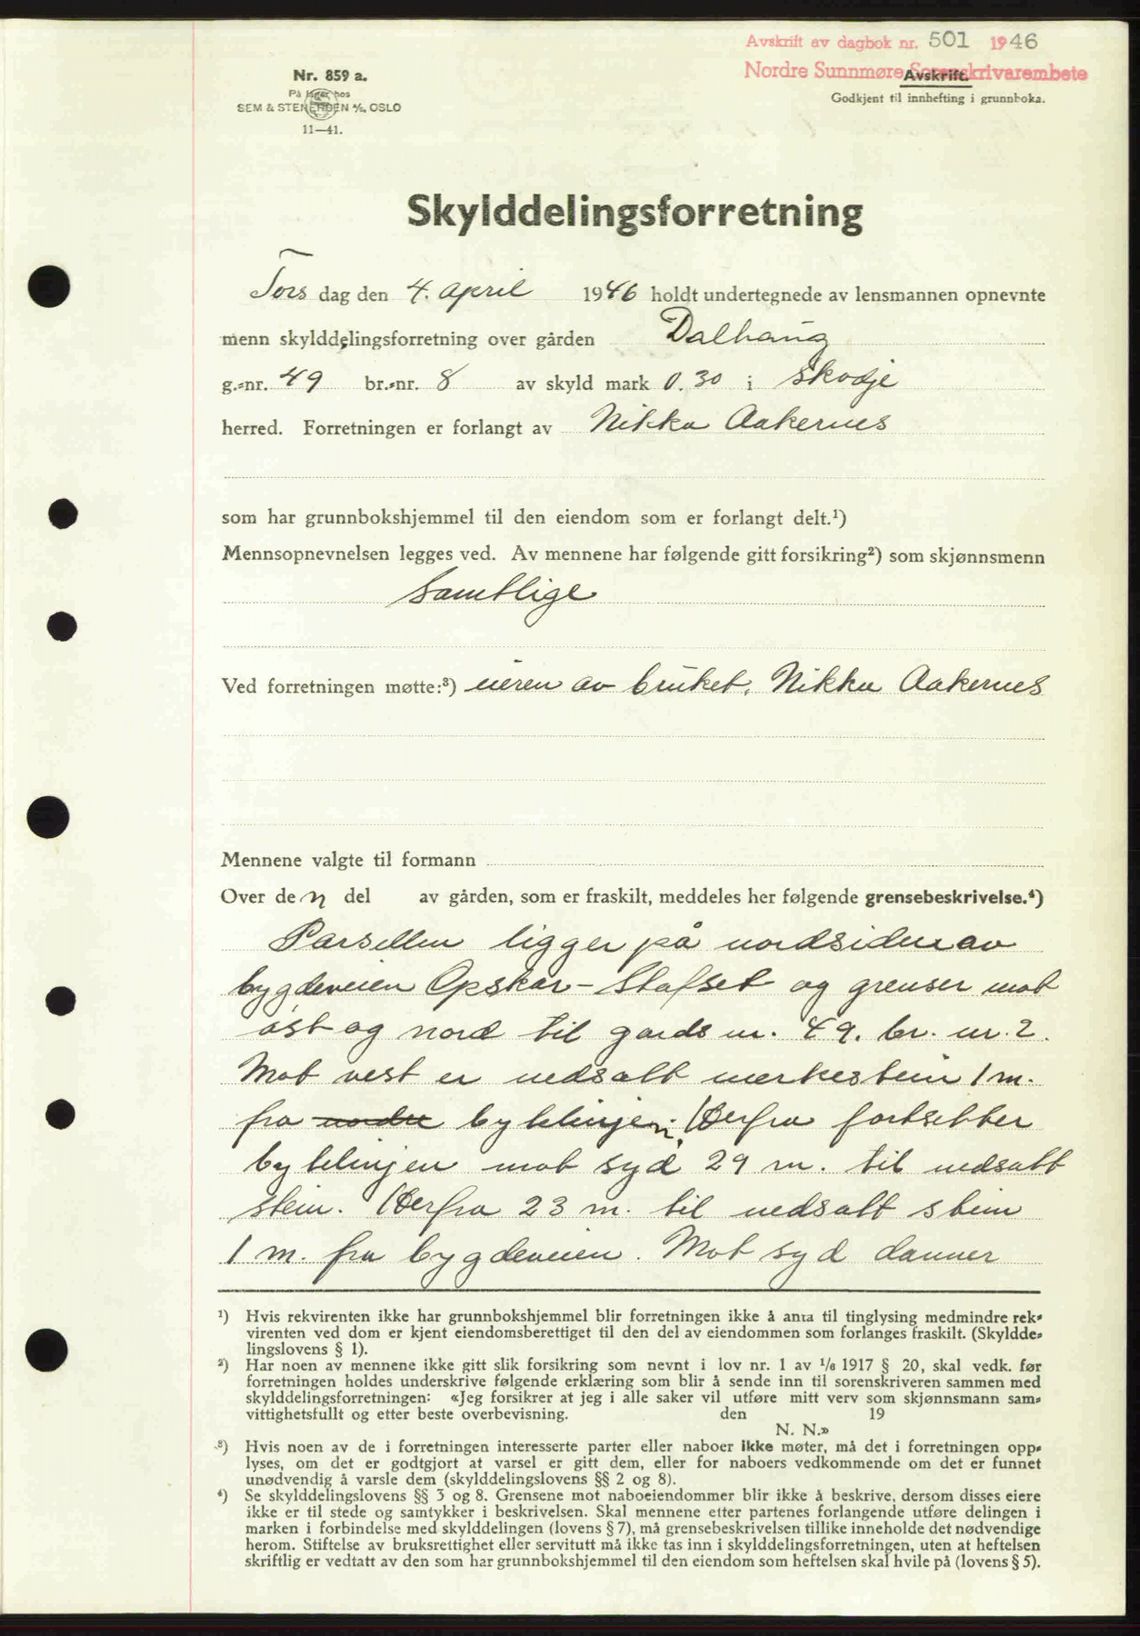 Avskrift av dagbok nr. 501 1946
Nordre Sunnmøre Sorenskrivarembete
Nr. 859 a.
Avskrift.
På lager hos
SEM & STENERSEN A/S, OSLO
11—41.
Godkjent til innhefting i grunnboka.
Skylddelingsforretning
Tors dag den 4. april 1946 holdt undertegnede av lensmannen opnevnte
menn skylddelingsforretning over gården Dalhaug
g.-nr. 49 br.-nr. 8 av skyld mark 0.30 i Skodje
herred. Forretningen er forlangt av Nikka Aakernes
som har grunnbokshjemmel til den eiendom som er forlangt delt.¹)
Mennsopnevnelsen legges ved. Av mennene har følgende gitt forsikring²) som skjønnsmenn
Samtlige
Ved forretningen møtte:³) eieren av bruket, Nikka Aakernes
Mennene valgte til formann
Over den del av gården, som er fraskilt, meddeles her følgende grensebeskrivelse.⁴)
Parsellen ligger på nordsiden av
bygdeveien Opskar - Stafset og grenser mot
øst og nord til gards nr. 49. br. nr. 2.
Mot vest er nedsatt merkestein 1 m.
fra nordre bytelinjen. Herfra fortsetter
bytelinjen mot syd 29 m. til nedsatt
stein. Herfra 23 m. til nedsatt stein
1 m. fra bygdeveien. Mot syd danner
¹) Hvis rekvirenten ikke har grunnbokshjemmel blir forretningen ikke å anta til tinglysing medmindre rek-
virenten ved dom er kjent eiendomsberettiget til den del av eiendommen som forlanges fraskilt. (Skyldde-
lingslovens § 1).
²) Har noen av mennene ikke gitt slik forsikring som nevnt i lov nr. 1 av 1/6 1917 § 20, skal vedk. før
forretningen holdes underskrive følgende erklæring som blir å sende inn til sorenskriveren sammen med
skylddelingsforretningen: «Jeg forsikrer at jeg i alle saker vil utføre mitt verv som skjønnsmann sam-
vittighetsfullt og etter beste overbevisning. den 19
N. N.»
³) Hvis noen av de i forretningen interesserte parter eller naboer ikke møter, må det i forretningen opp-
lyses, om det er godtgjort at varsel er gitt dem, eller for naboers vedkommende om det er funnet
unødvendig å varsle dem (skylddelingslovens §§ 2 og 8).
⁴) Se skylddelingslovens §§ 3 og 8. Grensene mot naboeiendommer blir ikke å beskrive, dersom disses eiere
ikke er til stede og samtykker i beskrivelsen. Skal mennene etter partenes forlangende utføre delingen i
marken i forbindelse med skylddelingen (lovens § 7), må grensebeskrivelsen tillike inneholde det nødvendige
herom. Stiftelse av bruksrettighet eller servitutt må ikke tas inn i skylddelingsforretningen, uten at heftelsen
skriftlig er vedtatt av den som har grunnbokshjemmel til den eiendom som heftelsen skal hvile på (lovens § 5).